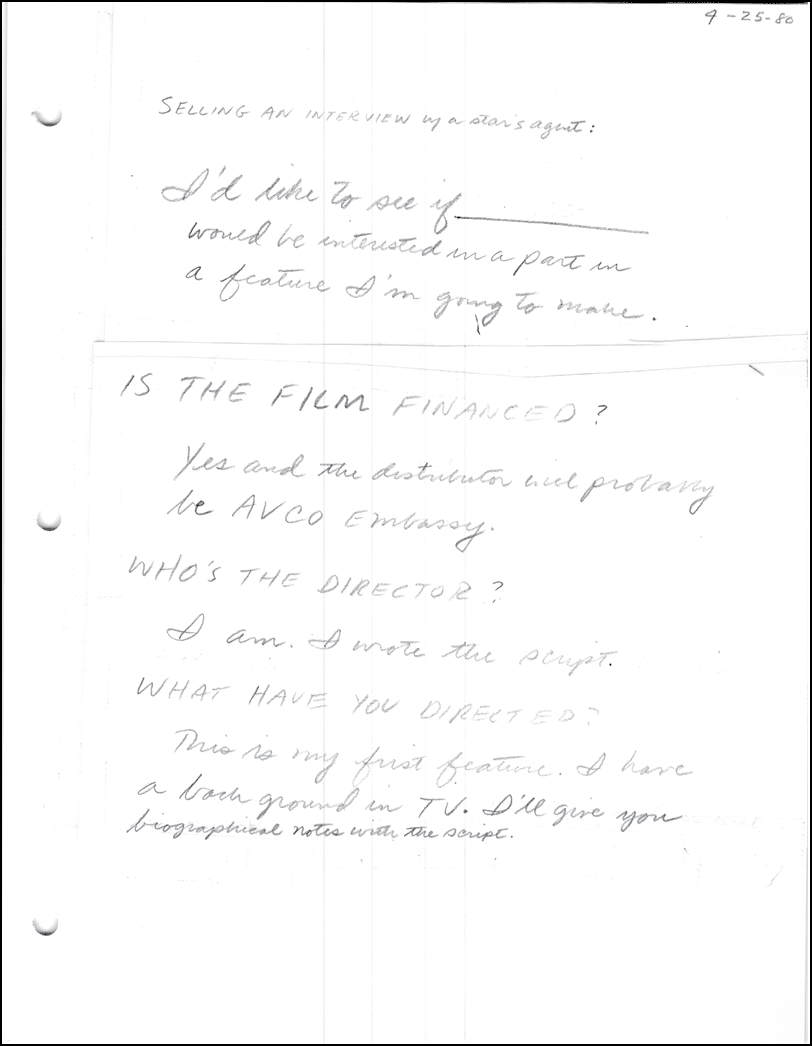 4-25-80
SELLING AN INTERVIEW w/ a star's agent:
I'd like to see if __________
would be interested in a part in
a feature I'm going to make.
IS THE FILM FINANCED?
Yes and the distributor will probably
be AVCO Embassy.
WHO'S THE DIRECTOR?
I am. I wrote the script.
WHAT HAVE YOU DIRECTED?
This is my first feature. I have
a back ground in TV. I'll give you
biographical notes with the script.